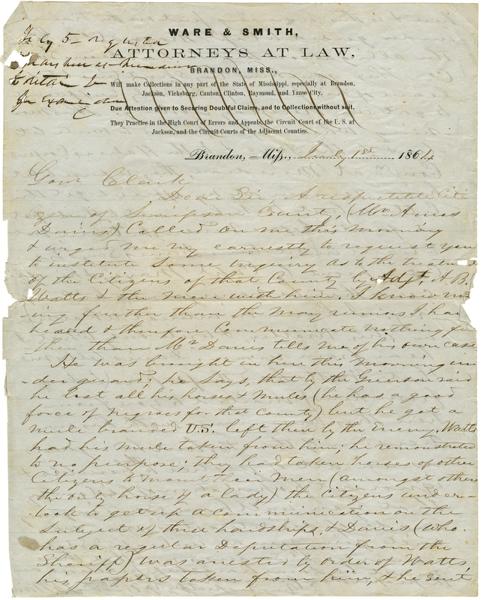 WARE & SMITH,
ATTORNEYS AT LAW,
BRANDON, MISS.,
Will make Collections in any part of the State of Mississippi, especially at Brandon,
Jackson, Vicksburg, Canton, Clinton, Raymond, and Yazoo City.
Due Attention given to Securing Doubtful Claims, and to Collections without suit.
They Practice in the High Court of Errors and Appeals, the Circuit Court of the U. S. at
Jackson, and the Circuit Courts of the Adjacent Counties.
July 5
Brandon, Miss., July 1st 1864
Gov Clark
Dear Sir, A respectable Citi
zen of Simpson County, (Mr
Davis) Called on me this morning
& me my earnestly to request you
to institute some inquiry as to the treatm
of the Citizens of that County by Adjt. & B.
Watts & the men with him. I know no
ing further than the many rumors I hav
heard & therefore Communicate nothing fur
ther than Mr Davis tells me of his own case
He was brought in here this morning un
der guard; he says, that by the Grierson raid
he lost all his horses & mules (he has a good
force of negroes for that county) but he got a
mule branded U.S. left then by the enemy. Watts
had his mule taken from him; he remonstrated
to no purpose; they had taken horses of other
Citizens to mount their men (amongst others
the only horse of a lady) the Citizens under-
took to get up a communication on the
subject of these hardships, & Davis (who
has a regular Deputation from the
Sheriff) was arrested by order of Watts,
his papers taken from him, & he sent